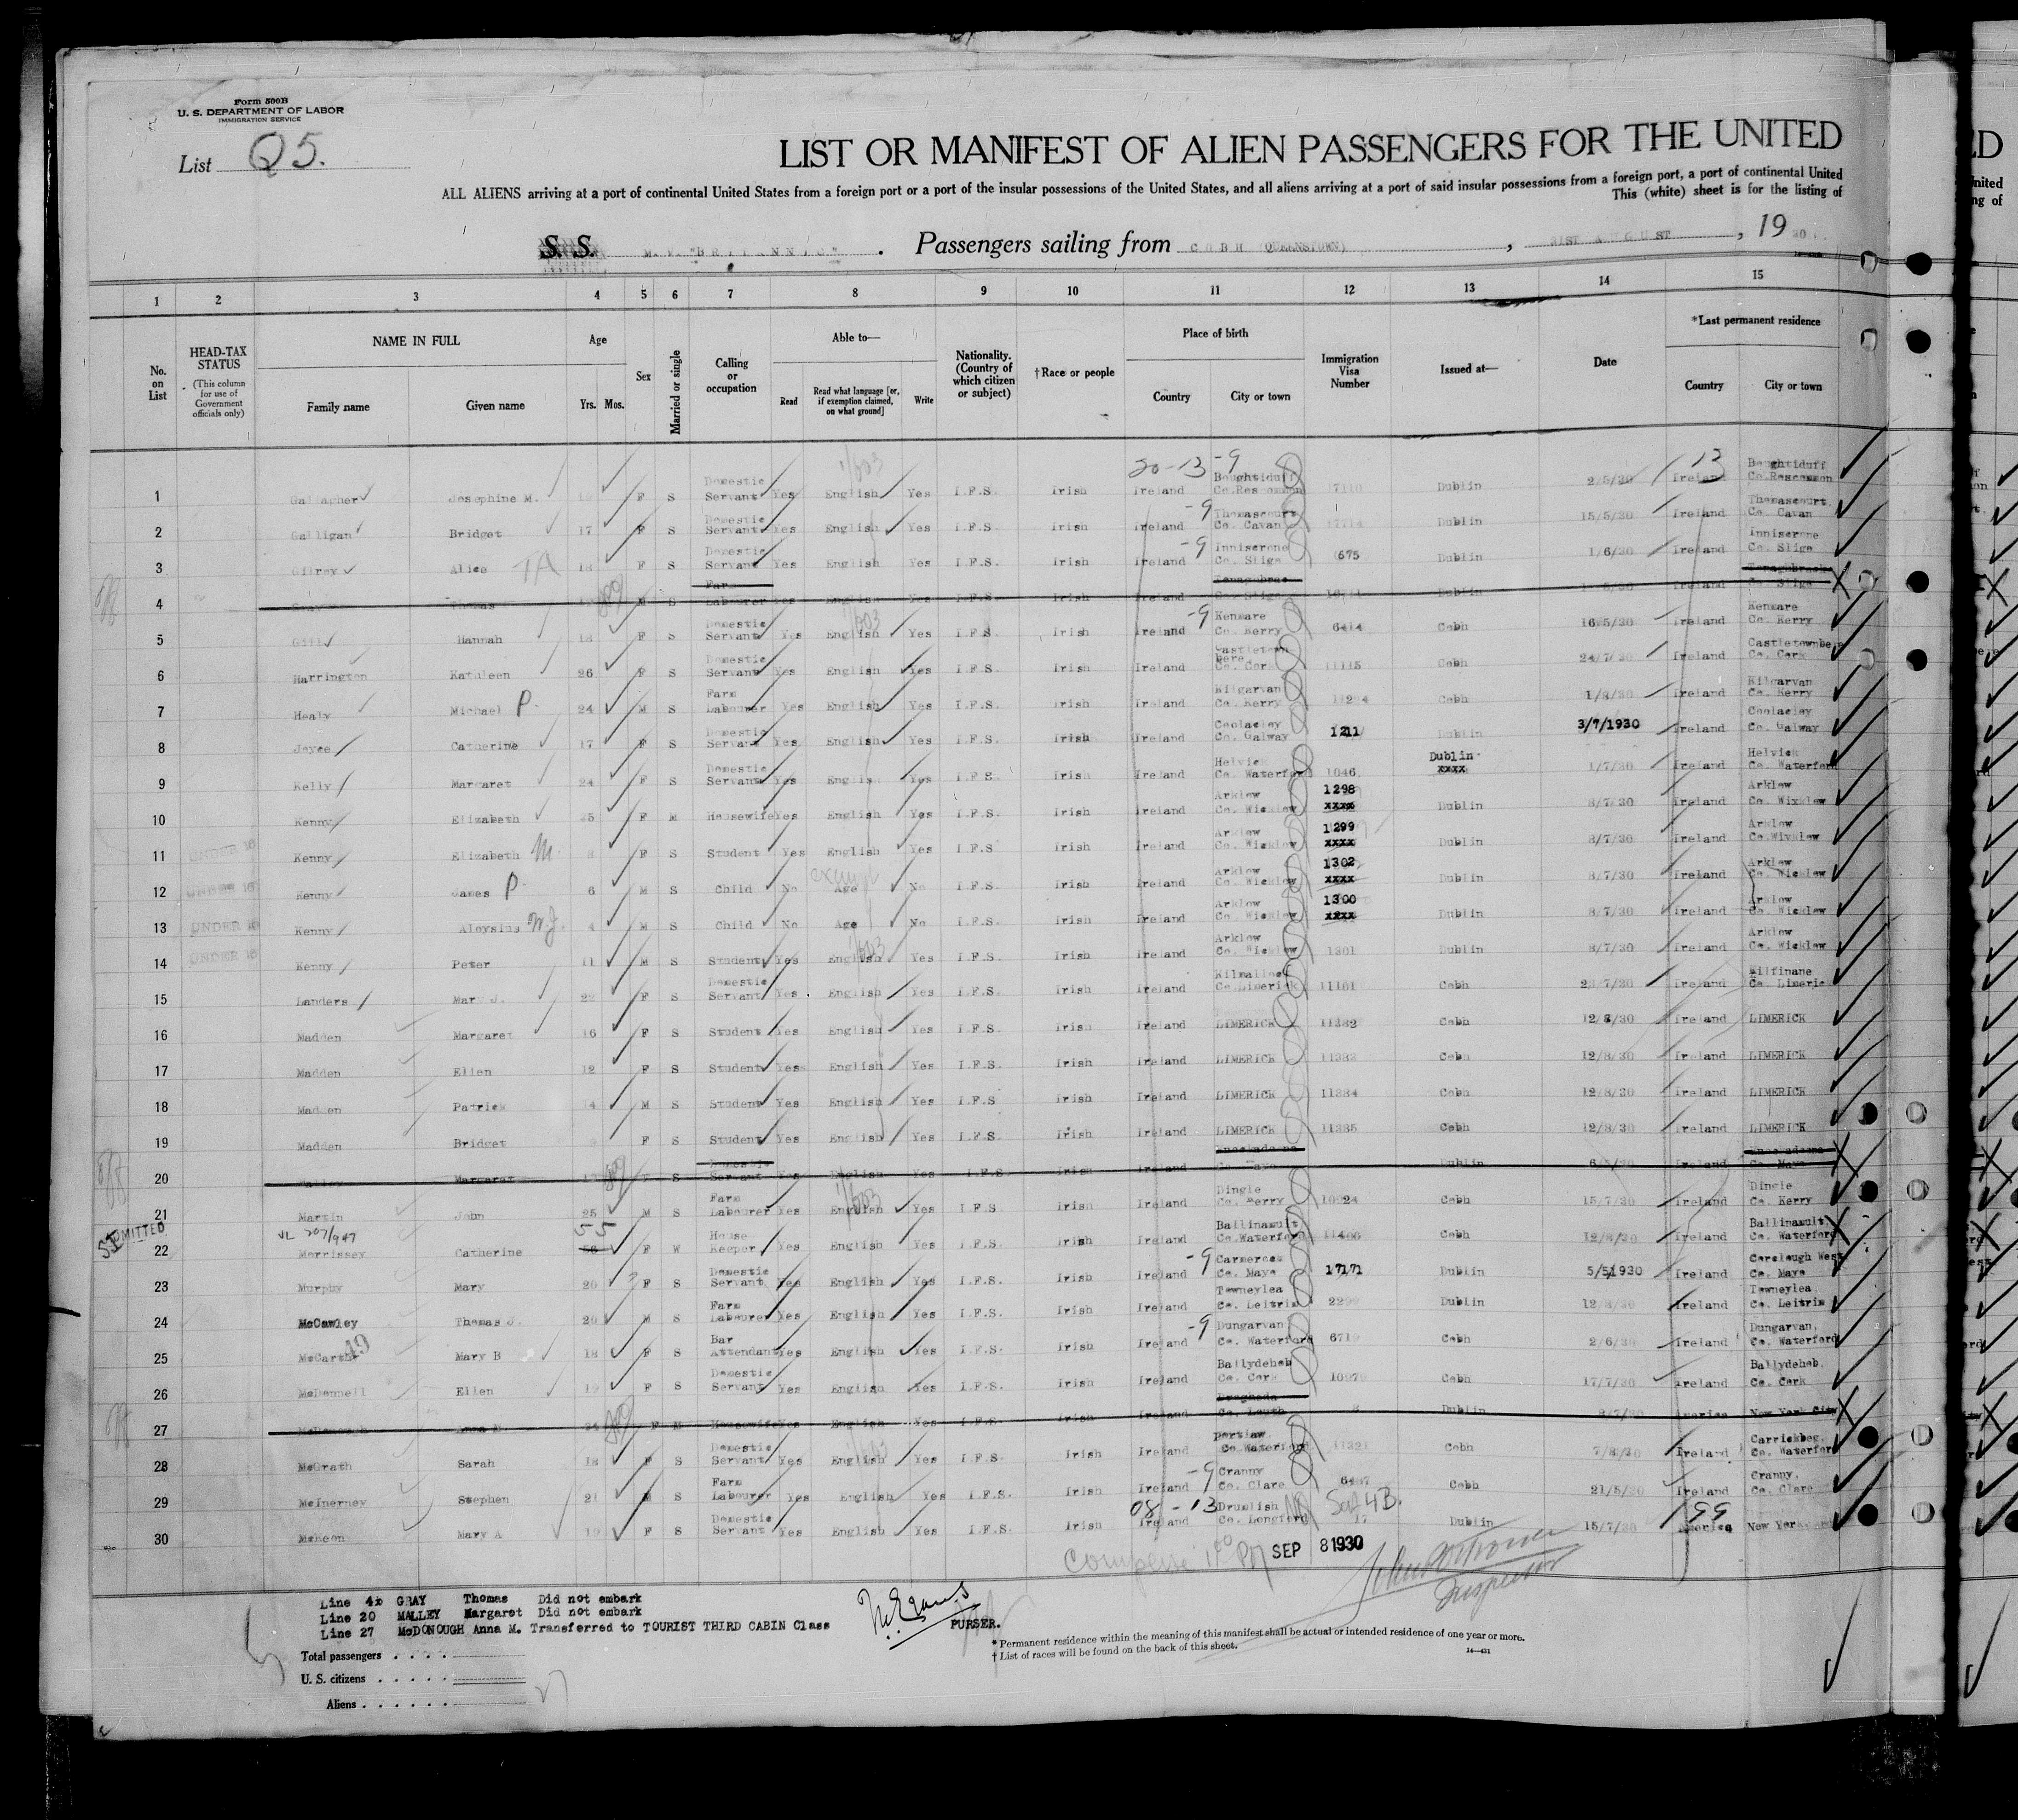 Form 500B
U. S. DEPARTMENT OF LABOR
IMMIGRATION SERVICE
List Q5.
LIST OR MANIFEST OF ALIEN PASSENGERS FOR THE UNITED
ALL ALIENS arriving at a port of continental United States from a foreign port or a port of the insular possessions of the United States, and all aliens arriving at a port of said insular possessions from a foreign port, a port of continental United
This (white) sheet is for the listing of
S. S. M. V. "BRITANNIC". Passengers sailing from COBH (QUEENSTOWN), 31ST AUGUST, 1930
1 2 3 4 5 6 7 8 9 10 11 12 13 14 15
No. on List
HEAD-TAX STATUS
(This column for use of Government officials only)
NAME IN FULL
Family name Given name
Age
Yrs. Mos.
Sex
Married or single
Calling or occupation
Able to—
Read
Read what language [or, if exemption claimed, on what ground]
Write
Nationality. (Country of which citizen or subject)
†Race or people
Place of birth
Country City or town
Immigration Visa Number
Issued at—
Date
*Last permanent residence
Country City or town
20-13 -9 13
1 Gallagher Josephine M. F S Domestic Servant Yes English Yes I.F.S. Irish Ireland Boughtiduff Co.Roscommon Dublin 2/5/30 Ireland Boughtiduff Co.Roscommon
2 Galligan Bridget 17 F S Domestic Servant Yes English Yes I.F.S. Irish Ireland -9 Thomascourt Co. Cavan 17114 Dublin 15/5/30 Ireland Thomascourt, Co. Cavan
3 Gilroy Alice TA 18 F S Domestic Servant Yes English Yes I.F.S. Irish Ireland -9 Inniscrone Co. Sligo 675 Dublin 1/6/30 Ireland Inniscrone Co. Sligo
4 Gray Thomas M S Farm Labourer Yes English Yes I.F.S. Irish Ireland Dublin Ireland Co. Sligo
5 Gill Hannah 18 F S Domestic Servant Yes English Yes I.F.S Irish Ireland -9 Kenmare Co. Kerry 6414 Cobh 16/5/30 Ireland Kenmare Co. Kerry
6 Harrington Kathleen 26 F S Domestic Servant Yes English Yes I.F.S. Irish Ireland Castletown bere Co. Cork 11115 Cobh 24/7/30 Ireland Castletownbere Co. Cork
7 Healy Michael P. 24 M S Farm Labourer Yes English Yes I.F.S. Irish Ireland Kilgarvan Co. Kerry Cobh 1/8/30 Ireland Kilgarvan Co. Kerry
8 Joyce Catherine 17 F S Domestic Servant Yes English Yes I.F.S. Irish Ireland Coolacloy Co. Galway 1211 Dublin 3/7/1930 Ireland Coolacloy Co. Galway
9 Kelly Margaret 24 F S Domestic Servant Yes English Yes I.F.S. Irish Ireland Helvick Co. Waterford 1046 Dublin xxxx 1/7/30 Ireland Helvick Co. Waterford
10 Kenny Elizabeth F M Housewife Yes English Yes I.F.S. Irish Ireland Arklow Co. Wicklow 1298 xxxx Dublin 8/7/30 Ireland Arklow Co. Wicklow
11 UNDER 16 Kenny Elizabeth M. F S Student Yes English Yes I.F.S Irish Ireland Arklow Co. Wicklow 1299 xxxx Dublin 8/7/30 Ireland Arklow Co.Wivklow
12 UNDER 16 Kenny James P 6 M S Child No exempt Age No I.F.S. Irish Ireland Arklow Co. Wicklow 1302 xxxx Dublin 8/7/30 Ireland Arklow Co. Wicklow
13 UNDER 16 Kenny Aloysius M.J. 4 M S Child No Age No I.F.S. Irish Ireland Arklow Co. Wicklow 1300 xxxx Dublin 8/7/30 Ireland Arklow Co. Wicklow
14 UNDER 16 Kenny Peter 11 M S Student Yes English Yes I.F.S. Irish Ireland Arklow Co. Wicklow 1301 Dublin 8/7/30 Ireland Arklow Co. Wicklow
15 Landers Mary J. 22 F S Domestic Servant Yes English Yes I.F.S. Irish Ireland Kilmallock Co.Limerick 11161 Cobh Ireland Kilfinane Co. Limerick
16 Madden Margaret 16 F S Student Yes English Yes I.F.S. Irish Ireland LIMERICK 11382 Cobh 12/8/30 Ireland LIMERICK
17 Madden Ellen 12 F S Student Yes English Yes I.F.S. Irish Ireland LIMERICK 11383 Cobh 12/8/30 Ireland LIMERICK
18 Madden Patrick 14 M S Student Yes English Yes I.F.S Irish Ireland LIMERICK 11384 Cobh 12/8/30 Ireland LIMERICK
19 Madden Bridget F S Student Yes English Yes I.F.S. Irish Ireland LIMERICK 11385 Cobh 12/8/30 Ireland LIMERICK
20 Malley Margaret F S Domestic Servant Yes English Yes I.F.S Irish Ireland Co. Mayo Dublin Ireland Co. Mayo
21 Martin John 25 M S Farm Labourer Yes English Yes I.F.S Irish Ireland Dingle Co. Kerry 10924 Cobh 15/7/30 Ireland Dingle Co. Kerry
ADMITTED
VL 207/947 55
22 Morrissey Catherine F W House Keeper Yes English Yes I.F.S. Irish Ireland Ballinamult, Co.Waterford 11400 Cobh 12/8/30 Ireland Ballinamult, Co. Waterford
23 Murphy Mary 20 F S Domestic Servant Yes English Yes I.F.S. Irish Ireland -9 Co. Mayo 17171 Dublin 5/5/1930 Ireland Co. Mayo
24 McCawley Thomas J. 20 M S Farm Labourer Yes English Yes I.F.S. Irish Ireland Tawneylea Co. Leitrim Dublin 12/8/30 Ireland Tawneylea Co. Leitrim
25 McCarthy Mary B 18 F S Bar Attendant Yes English Yes I.F.S. Irish Ireland -9 Dungarvan Co. Waterford 6710 Cobh 2/6/30 Ireland Dungarvan, Co. Waterford
26 McDonnell Ellen 19 F S Domestic Servant Yes English Yes I.F.S. Irish Ireland Ballydehob Co. Cork 10979 Cobh 17/7/30 Ireland Ballydehob, Co. Cork
27 McDonough Anna M. 24 F M Housewife Yes English Yes I.F.S. Irish Ireland Drogheda Co. Louth Dublin 8/7/30 America New York City
28 McGrath Sarah 18 F S Domestic Servant Yes English Yes I.F.S Irish Ireland Portlaw Co.Waterford 11321 Cobh 7/8/30 Ireland Carrickbeg, Co. Waterford
29 McInerney Stephen 21 M S Farm Labourer Yes English Yes I.F.S. Irish Ireland -9 Cranny Co. Clare 6487 Cobh 21/5/30 Ireland Cranny, Co. Clare
08 - 13 Sec 4B. 99
30 McKeon Mary A 19 F S Domestic Servant Yes English Yes I.F.S. Irish Ireland Drumlish Co. Longford 17 Dublin 15/7/30 America New York
SEP 8 1930
Inspector
Line 4 GRAY Thomas Did not embark
Line 20 MALLEY Margaret Did not embark
Line 27 McDONOUGH Anna M. Transferred to TOURIST THIRD CABIN Class
PURSER.
* Permanent residence within the meaning of this manifest shall be actual or intended residence of one year or more.
† List of races will be found on the back of this sheet.
Total passengers
U. S. citizens
Aliens 27